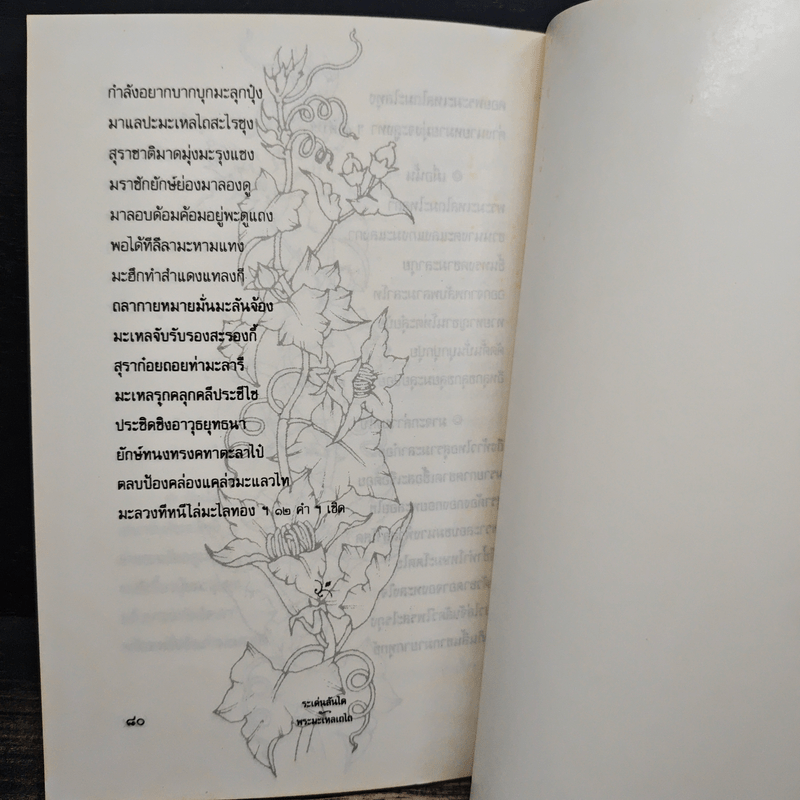 กำลังอยากบากบุกมะลุกปุ๋ง
มาแลปะมะเหลไถสะไรซุง
สุราชาติมาดมุ่งมะรุงแชง
มราซักยักษ์ย่องมาลองดู
มาลอบด้อมค้อมอยู่พะตูแถง
พอได้ทีลีลามะหามแทง
มะฮึกทำสำแดงแทลงกี
ถลากายหมายมั่นมะลันจ้อง
มะเหลจับรับรองสะรองกี้
สุราก๋อยถอยท่ามะลารี
มะเหลรุกคลุกคลีประชีไช
ประชิดชิงอาวุธยุทธนา
ยักษ์ทนงทรงคทาตะลาไป๋
ตลบป้องคล่องแคล่วมะแลวไท
มะลวงทีหนีไล่มะไลทอง ฯ ๑๒ คำ ฯ เชิด
ระเด่นลันได
พระมะเหลเถไถ
๘๐